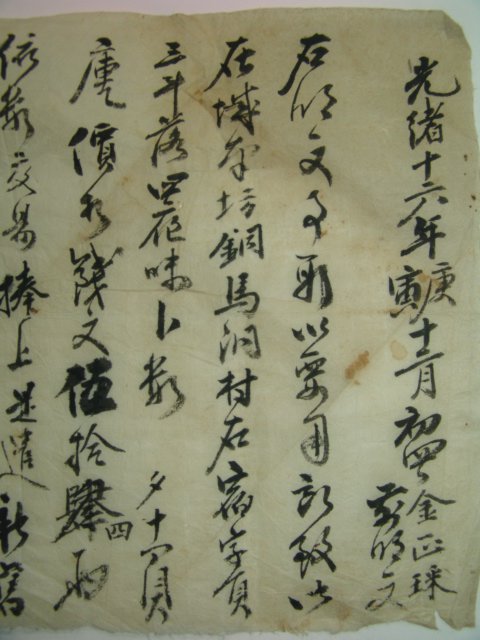 光緖十六年庚寅十二月初四日金正珠前明文
右明文事段以要用所致以
在城外坊銅馬洞村右宿字員
三斗落四夜味卜數夕十四負
㐣價折錢文伍拾肆四兩
依數交易捧上是遣新舊